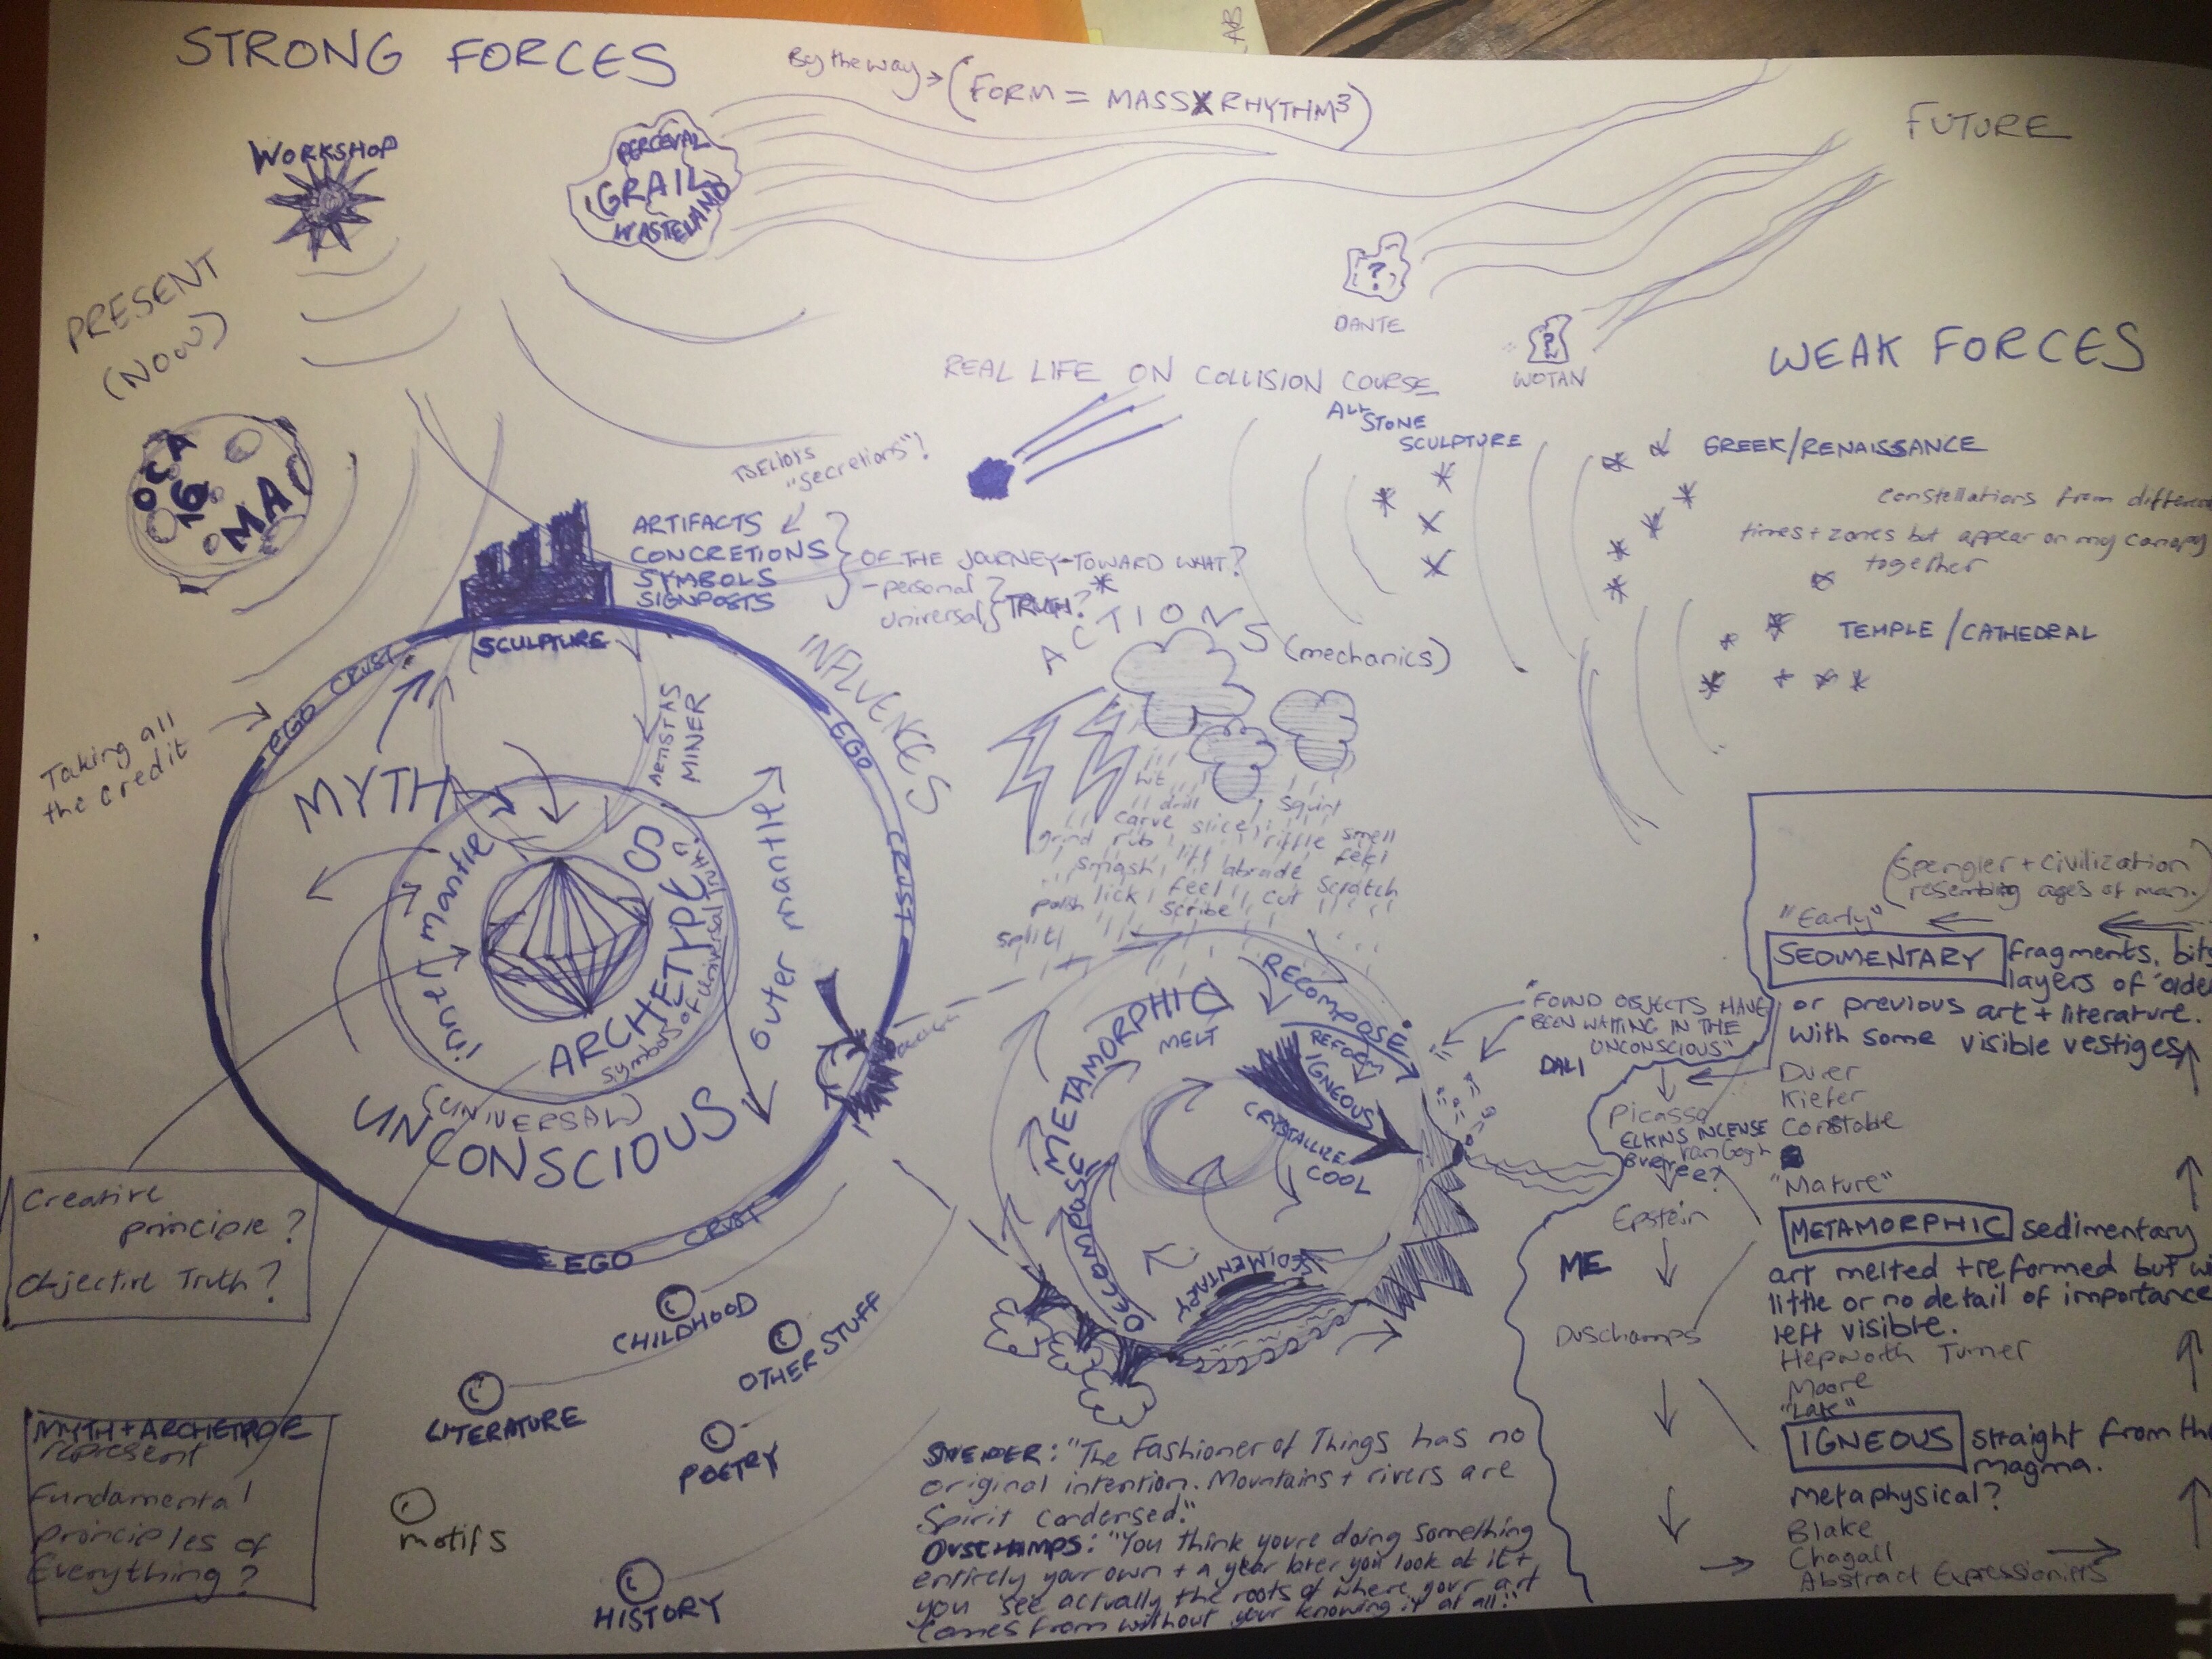 STRONG FORCES
By the way → (FORM = MASS X RHYTHM³)
FUTURE
WORKSHOP
PERCEVAL
GRAIL
WASTELAND
PRESENT
(NOW)
DANTE
?
WOTAN
?
WEAK FORCES
REAL LIFE ON COLLISION COURSE
ALL STONE
SCULPTURE
GREEK/RENAISSANCE
constellations from different
times + zones but appear on my canopy
together
TEMPLE/CATHEDRAL
OCA
16
MA
TSELIOTS
"secretions"!
ARTIFACTS
CONCRETIONS
SYMBOLS
SIGNPOSTS
OF THE JOURNEY-TOWARD WHAT?
- personal
universal
TRUTH? *
SCULPTURE
INFLUENCES
ACTIONS (mechanics)
Taking all
the credit
EGO CRUST
EGO CRUST
EGO CRUST
MYTH
ARTIST AS
MINER
inner mantle
outer mantle
ARCHETYPES
Symbols of Universal Truth?
(UNIVERSAL)
UNCONSCIOUS
hit
drill squirt
carve slice
grind rub riffle smell
smash lift abrade feel
polish lick feel cut scratch
scribe
split
METAMORPHIC
MELT
RECOMPOSE
REFORM
IGNEOUS
CRYSTALLIZE
COOL
DECOMPOSE
SEDIMENTARY
"FOUND OBJECTS HAVE
BEEN WAITING IN THE
UNCONSCIOUS"
DALI
Picasso
ELKINS INCENSE
van Gogh
Epstein
ME
Duschamps
(Spengler + civilization
resembing ages of man.)
"Early"
SEDIMENTARY fragments, bits
layers of older
or previous art + literature.
with some visible vestiges
Durer
Kiefer
Constable
"Mature"
METAMORPHIC sedimentary
art melted + reformed but wi
little or no detail of importance
left visible.
Hepworth Turner
Moore
"Late"
IGNEOUS straight from the
magma.
Metaphysical?
Blake
Chagall
Abstract Expressionists
Creative
principle?
Objective Truth?
MYTH + ARCHETYPE
represent
Fundamental
principles of
Everything?
CHILDHOOD
OTHER STUFF
LITERATURE
POETRY
motifs
HISTORY
"The Fashioner of Things has no
original intention. Mountains + rivers are
Spirit condensed."
DUSCHAMPS: "You think youre doing something
entirely your own + a year later you look at it +
you see actually the roots of where your art
comes from without your knowing it at all."